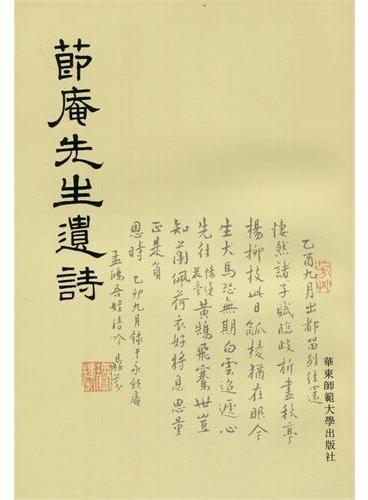 節庵先生遺詩
乙酉九月出都留別往還
悽然諸子賦臨歧折盡秋亭
楊柳枝此日觚棱猶在眼今
生犬馬恐無期白雲迢遞心
先往黃鵠飛騫世豈
知蘭佩荷衣好將息思量
正是負
恩時 乙卯九月錄于
孟鴻吾姪
華東師範大學出版社